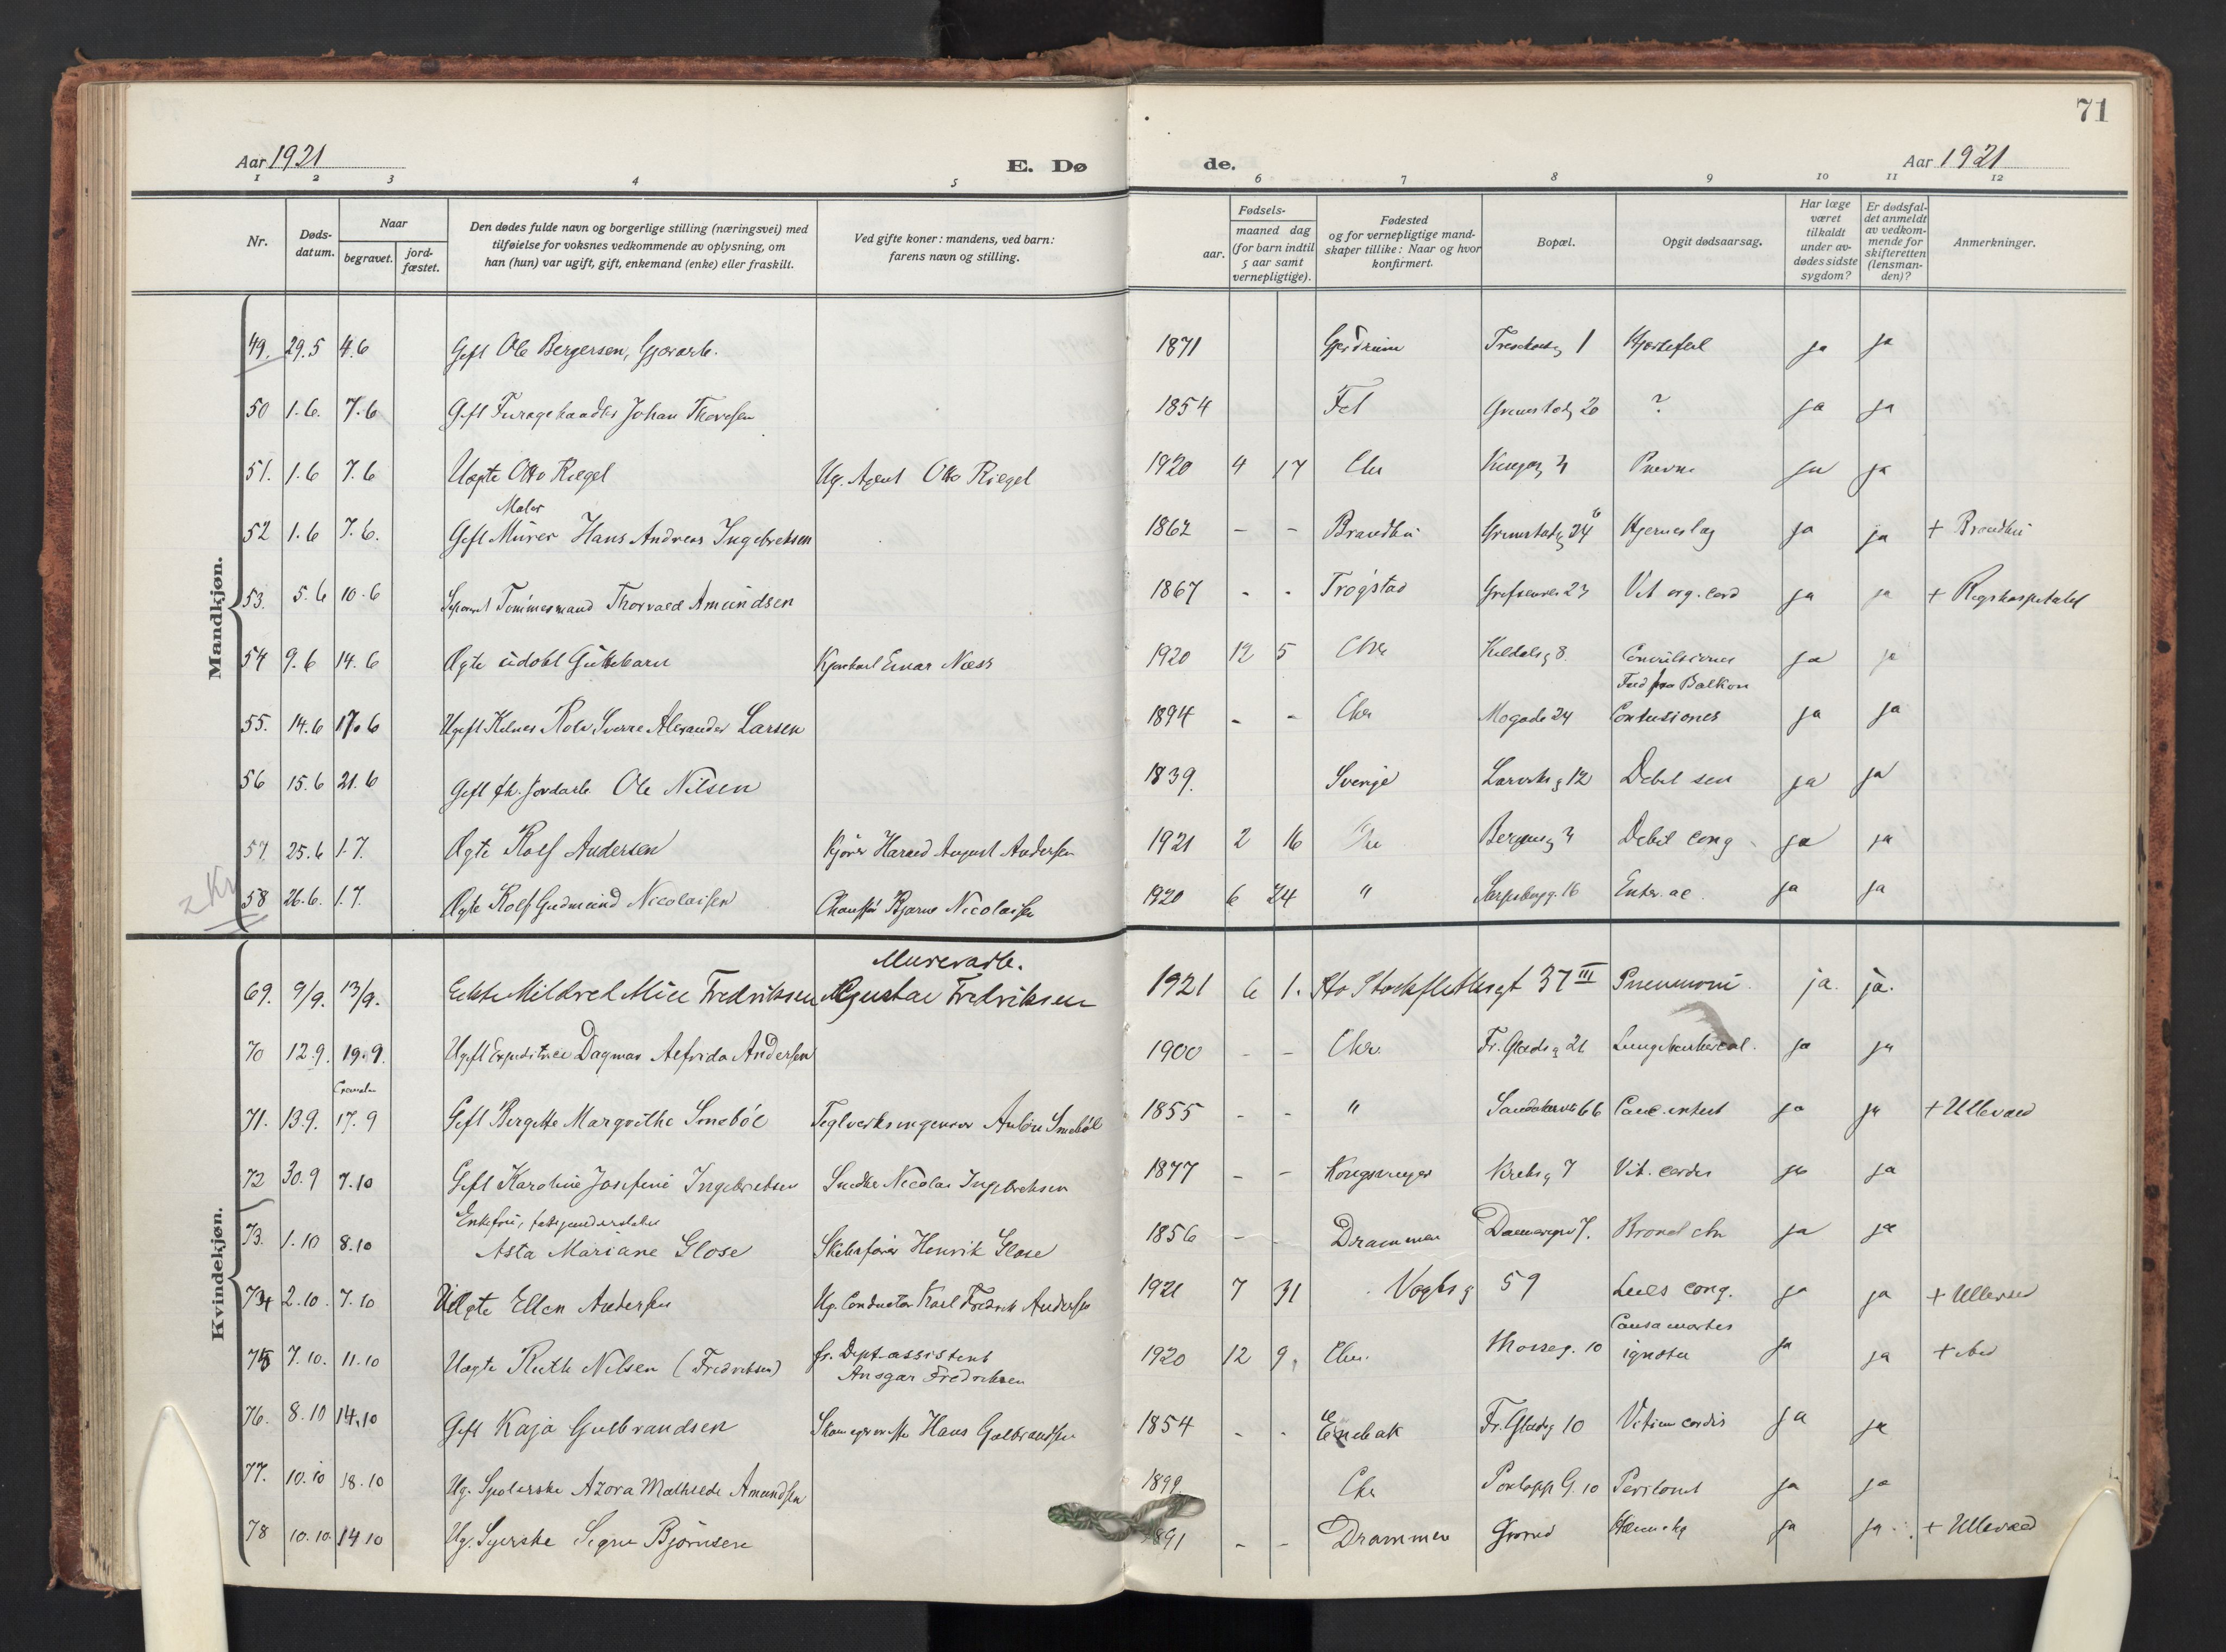 71
Aar 1921 E. Dø de. Aar 1921
1 2 3 4 5 6 7 8 9 10 11 12
Nr.
Døds-
datum.
Naar
begravet.
jord-
fæstet.
Den dødes fulde navn og borgerlige stilling (næringsvei) med
tilføielse for voksnes vedkommende av oplysning, om
han (hun) var ugift, gift, enkemand (enke) eller fraskilt.
Ved gifte koner: mandens, ved barn:
farens navn og stilling.
aar.
Fødsels-
maaned dag
(for barn indtil
5 aar samt
vernepligtige).
Fødested
og for vernepligtige mand-
skaper tillike: Naar og hvor
konfirmert.
Bopæl.
Opgit dødsaarsag.
Har læge
været
tilkaldt
under av-
dødes sidste
sygdom?
Er dødsfal-
det anmeldt
av vedkom-
mende for
skifteretten
(lensman-
den)?
Anmerkninger.
Mandkjøn.
49. 29.5 4.6 Gift Ole Bergersen, 1871 Gjerdrum 1 Hjertefeil ja ja
50 1.6. 7.6 Gift Johan Thoresen 1854 Fet Grimstadg 20 ? ja ja
51. 1.6 7.6 Uegte Otto Riegel Ug. Agent Otto Riegel 1920 4 17 Chr ja ja
Maler
52 1.6 7.6. Gift Murer Hans Andreas Ingebretsen 1862 - - Brandbu Grimstadg 24 Hjerneslag ja ja + Brandbu
53. 5.6 10.6 Tømmermand Thorvald Amundsen 1867 - - Trøgstad Grefsenvei 23 Vit org. cord ja ja + Rigshospitalet
54 9.6 14.6 Ægte udøbt Guttebarn Einar Næss 1920 12 5 Chr 8. Convulsiones ja ja
Fald fra Balkon
55. 14.6 17.6 Ugift Kelner Rolv Sverre Alexander Larsen 1894 - - Chr Mogade 24 Contusiones ja ja
56 15.6 21.6 Gift fh. Jordarb. Ole Nilsen 1839. Sverige Larviksg 12 Debil sen ja ja
57. 25.6 1.7. Ægte Rolf Andersen Kjører Harald August Andersen 1921 2 16 Chr Bergensg 3 Debil cong ja ja
2 Kr
58 26.6. 1.7. Ægte Rolf Gudmund Nicolaisen Chauffør Bjarne Nicolaisen 1920 6 24 " Sarpsborgg. 16 Enter. ac. ja ja
Kvindekjøn.
Murerarb.
69. 9/9. 13/9. Ekte Mildred Alice Fredriksen Gustav Fredriksen 1921 6 1. Stockflethsgt 37 III Pneumoni ja. ja.
70 12.9. 19.9. Ugift Expeditrice Dagmar Alfrida Andersen 1900 - - Chr. Fr. Gladsg 21 Lungetuberkul. ja ja
71. 13.9. 17.9 Gift Birgitte Margrethe Smebøl Teglverksingeniør Smebøl 1855 - - " Sandakervei 66 Canc. intest ja ja + Ullevaal
72 30.9 7.10 Gift Karoline Josefine Ingebretsen Snedker Nicolai Ingebretsen 1877 - - Kongsvinger Krebsg 7 Vit. cordis ja ja
Enkefru,
73. 1.10 8.10 Asta Mariane Glose Skibsfører Henrik Glose 1856 - - Drammen 7. Bronch chr ja ja
74 2.10. 7.10 Uegte Ellen Andersen Ug. Conductør Karl Fredrik Andersen 1921 7 31 Vogtsg 59 Lues cong. ja ja + Ullevaal
Causa mortis
75 7.10. 11.10 Uegte Ruth Nilsen (Fredriksen) fr. Dept-assistent 1920 12 9. Chr. Thorsg. 10 ignota ja ja
Ansgar Fredriksen
76. 8.10 14.10 Gift Kaja Gulbrandsen Skomagermester Hans Gulbrandsen 1854 - - Enebak Fr. Gladsg 10 Vitium cordis ja ja
77. 10.10 18.10 Ug. Azora Mathilde Amundsen 1899 Chr 10 Peritonit ja ja
78 10.10 14 10 Ug. Syerske Signe Bjørnsen 1891 - - Drammen Grorud ja ja + Ullevaal